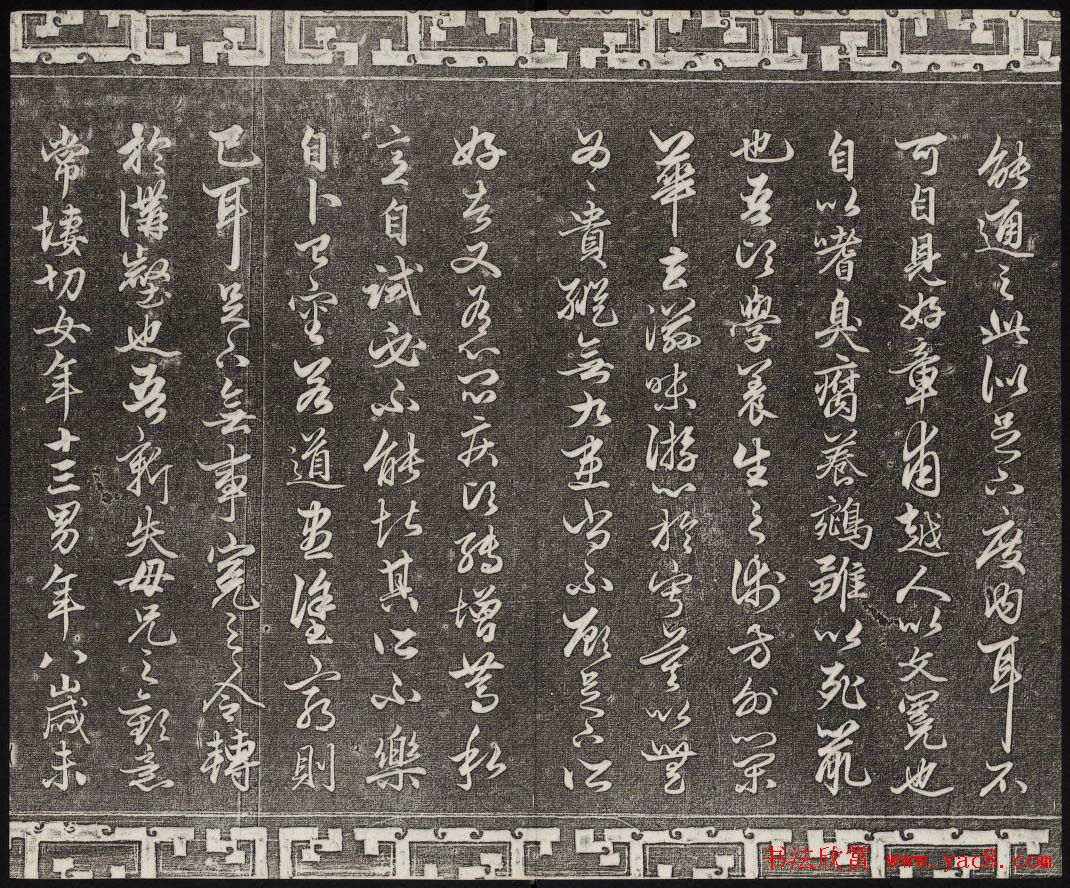 能通之此似足下度內耳不
可自見好章甫越人以文冕也
自以嗜臭腐養鵷雛以死鼠
也吾頃學養生之術方外榮
華去滋味游心於寂寞以無
為〻貴縱無九患尚不顧足下所
好者又有心悶疾頃轉增篤私
意自試必不能堪其所不樂
自卜已審若道盡塗窮則
已耳足下無事冤之令轉
於溝壑也吾新失母兄之歡意
常悽切女年十三男年八歲未
书法欣赏 www.yac8.com